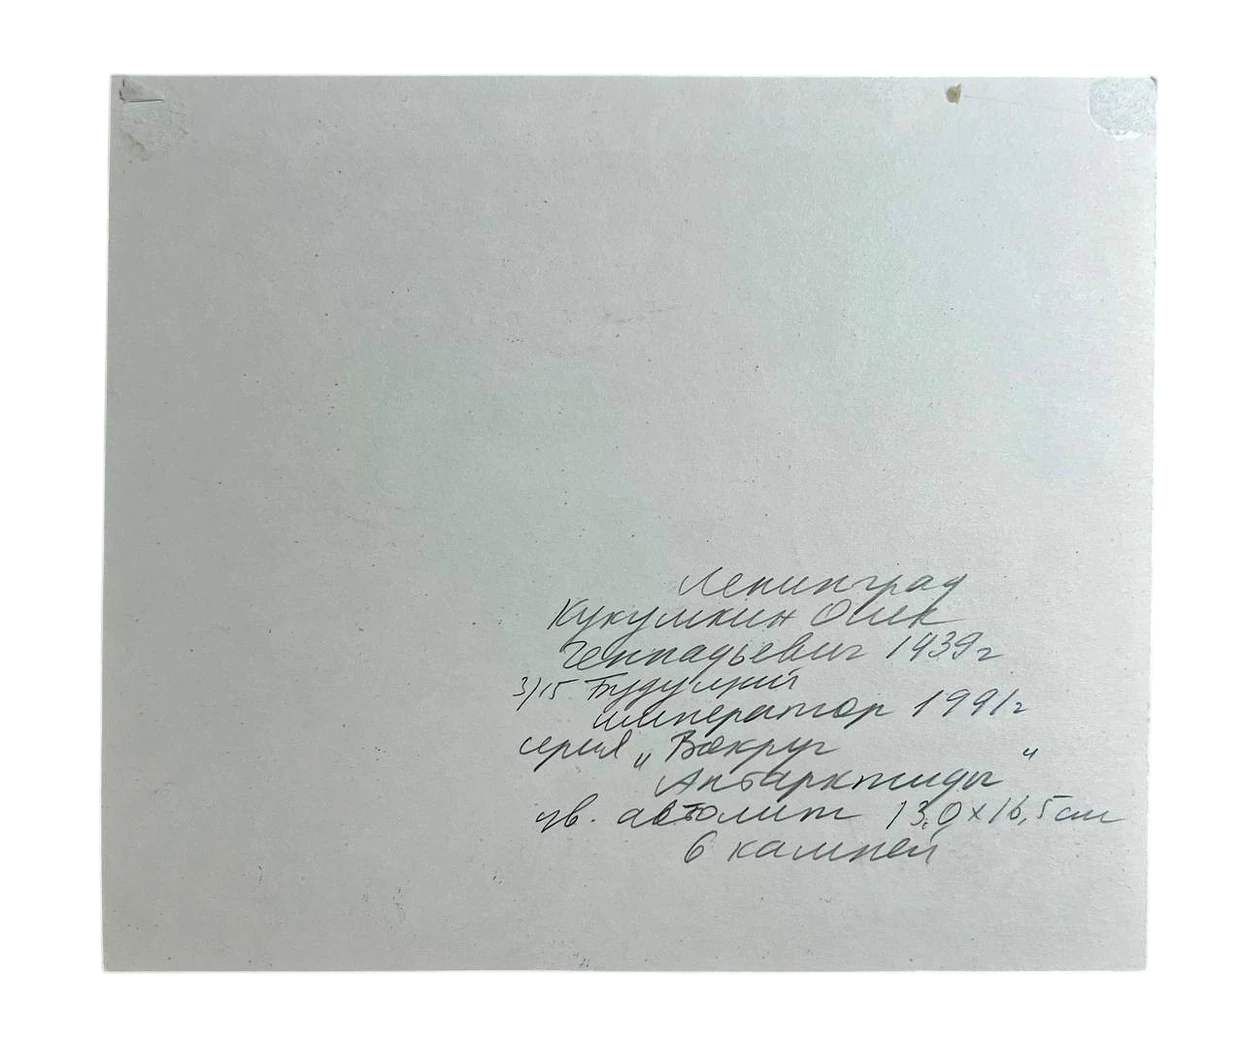 Ленинград
Кукушкин Олег
Геннадьевич 1939г
3/15 Будущий
император 1991г
серия „Вокруг
Антарктиды"
цв. автолит 13,0x16,5см
6 камней